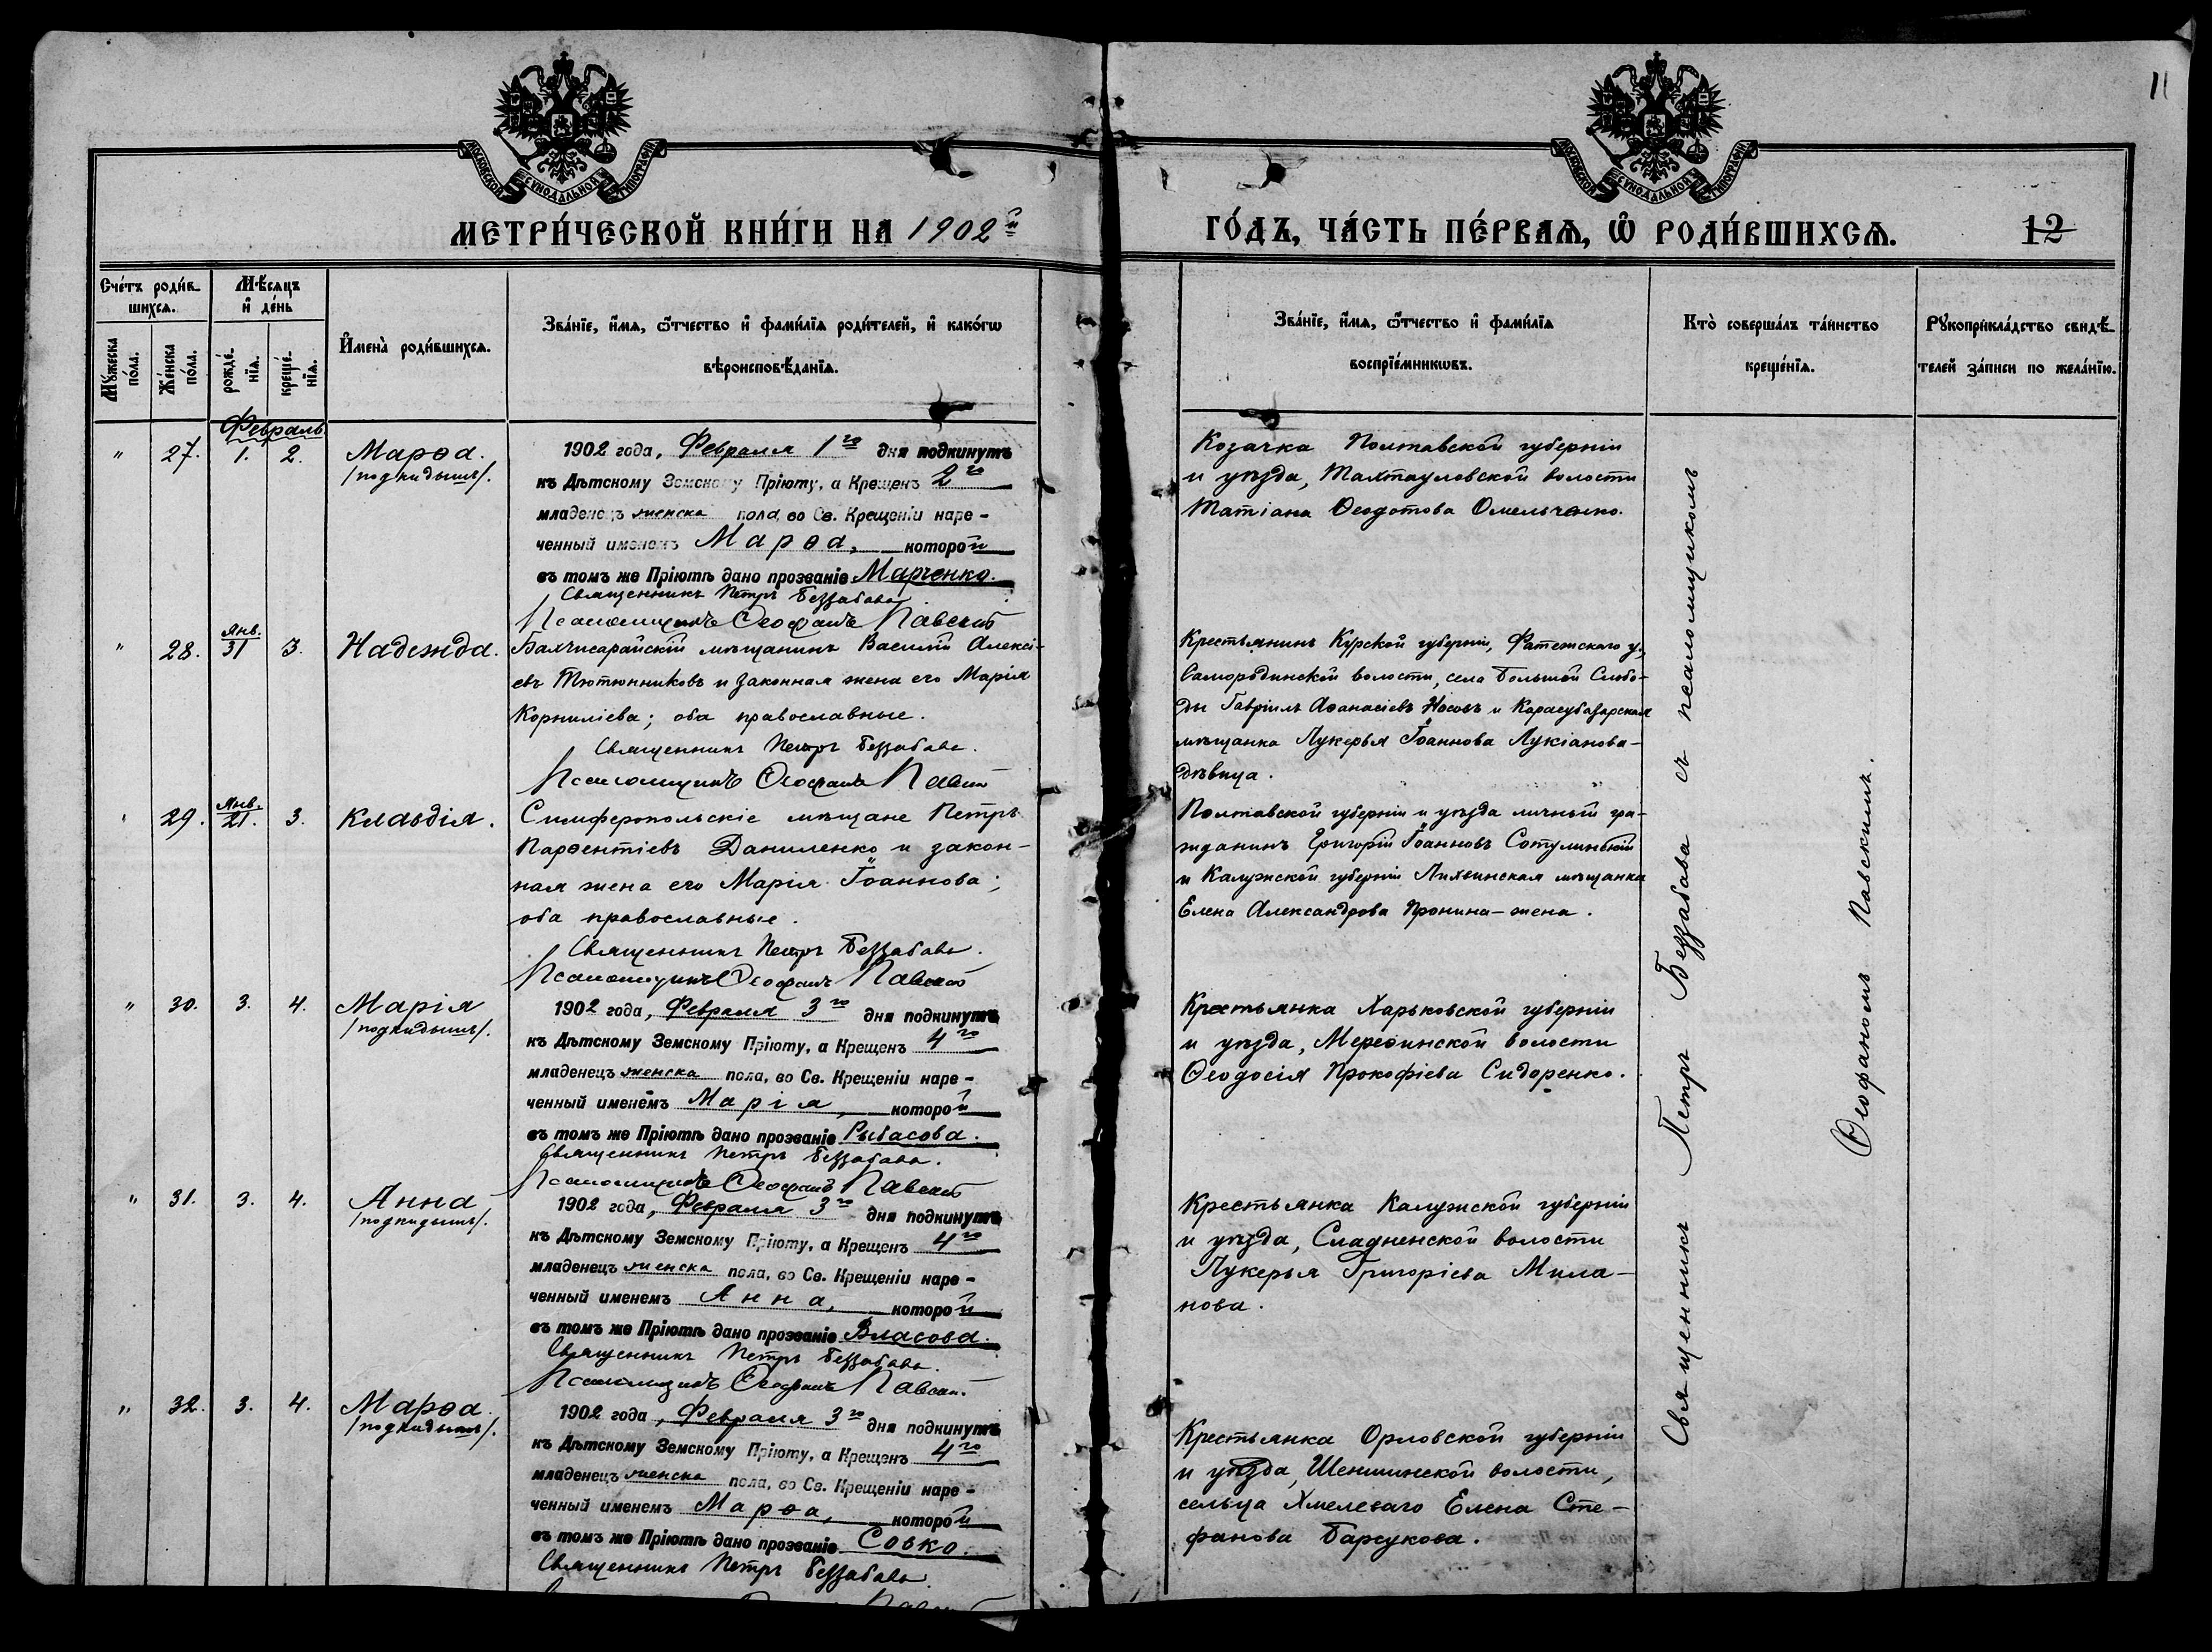 11
МОСКОВСКОЙ СУНОДАЛЬНОЙ ТИПОГРАФІИ
МОСКОВСКОЙ СУНОДАЛЬНОЙ ТИПОГРАФІИ
МЕТРИ́ЧЕСКОЙ КНИ́ГИ НА 1902й
ГО́ДЪ, ЧА́СТЬ ПЕ́РВАѦ, Ѽ РОДИ́ВШИХСѦ.
12
Сче́тъ роди́в-
шихсѧ.
Мꙋжеска по́ла.
Же́нска по́ла.
Мѣ́сяцъ
и҆ де́нь
рожде́-
нїѧ.
креще́-
нїѧ.
И҆мена̀ роди́вшихсѧ.
Зва́нїе, и҆́мѧ, ѻ҆́тчество и҆ фами́лїѧ роди́телей, и҆ како́гѡ
вѣроисповѣ́данїѧ.
Зва́нїе, и҆́мѧ, ѻ҆́тчество и҆ фами́лїѧ
воспрїе́мникѡвъ.
Кто̀ соверша́лъ та́инство
креще́нїѧ.
Рꙋкоприкла́дство свидѣ́-
телей за́писи по жела́нїю.
Февраль
" 27. 1. 2. Марѳа.
/подкидышъ/.
1902 года, Февраля 1го дня подкинутъ
къ Дѣтскому Земскому Пріюту, а Крещенъ 2го
младенецъ женска пола, во Св. Крещеніи наре-
ченный именемъ Марѳа, которой
въ томъ же Пріютѣ дано прозваніе Марченко.
Священникъ Петръ Беззабава
Псаломщикъ Ѳеофанъ Павскій
Козачка Полтавской губерніи
и уѣзда, Тахтауловской волости
Татіана Ѳеодотова Омельченко.
" 28. Янв. 31 3. Надежда.
Бахчисарайскій мѣщанинъ Василій Алексі-
евъ Тютюнниковъ и законная жена его Марія
Корниліева; оба православные.
Священникъ Петръ Беззабава.
Псаломщикъ Ѳеофанъ Павскій
Крестьянинъ Курской губерніи, Фатежскаго у.,
Самородинской волости, села Большой Слобо-
ды Гавріилъ Аѳанасіевъ Носовъ и Карасубазарская
мѣщанка Лукерья Іоаннова Лукіанова-
дѣвица.
29. Янв. 21. 3. Клавдія.
Симферопольскіе мѣщане Петръ
Парѳентіевъ Даниленко и закон-
ная жена его Марія Іоаннова;
оба православные.
Священникъ Петръ Беззабава.
Псаломщикъ Ѳеофанъ Павскій
Полтавской губерніи и уѣзда личный гра-
жданинъ Григорій Іоанновъ Сотулинскій
и Калужской губерніи Лихвинская мѣщанка
Елена Александрова Пронина-жена.
" 30. 3. 4. Марія
/подкидышъ/.
1902 года, Февраля 3го дня подкинутъ
къ Дѣтскому Земскому Пріюту, а Крещенъ 4го
младенецъ женска пола, во Св. Крещеніи наре-
ченный именемъ Марія, которой
въ томъ же Пріютѣ дано прозваніе Рыбасова.
Священникъ Петръ Беззабава.
Псаломщикъ Ѳеофанъ Павскій
Крестьянка Харьковской губерніи
и уѣзда, Мереѳинской волости
Ѳеодосія Прокофіева Сидоренко.
" 31. 3. 4. Анна
/подкидышъ/.
1902 года, Февраля 3го дня подкинутъ
къ Дѣтскому Земскому Пріюту, а Крещенъ 4го
младенецъ женска пола, во Св. Крещеніи наре-
ченный именемъ Анна, которой
въ томъ же Пріютѣ дано прозваніе Власова.
Священникъ Петръ Беззабава.
Псаломщикъ Ѳеофанъ Павскій.
Крестьянка Калужской губерніи
и уѣзда, Сладненской волости
Лукерья Григоріева Мила-
нова.
" 32. 3. 4. Марѳа.
/подкидышъ/.
1902 года, Февраля 3го дня подкинутъ
къ Дѣтскому Земскому Пріюту, а Крещенъ 4го
младенецъ женска пола, во Св. Крещеніи наре-
ченный именемъ Марѳа, которой
въ томъ же Пріютѣ дано прозваніе Совко.
Священникъ Петръ Беззабава
Крестьянка Орловской губерніи
и уѣзда, Шеншинской волости,
сельца Хмелеваго Елена Сте-
фанова Барсукова.
Священникъ Петръ Беззабава съ псаломщикомъ
Ѳеофаномъ Павскимъ.